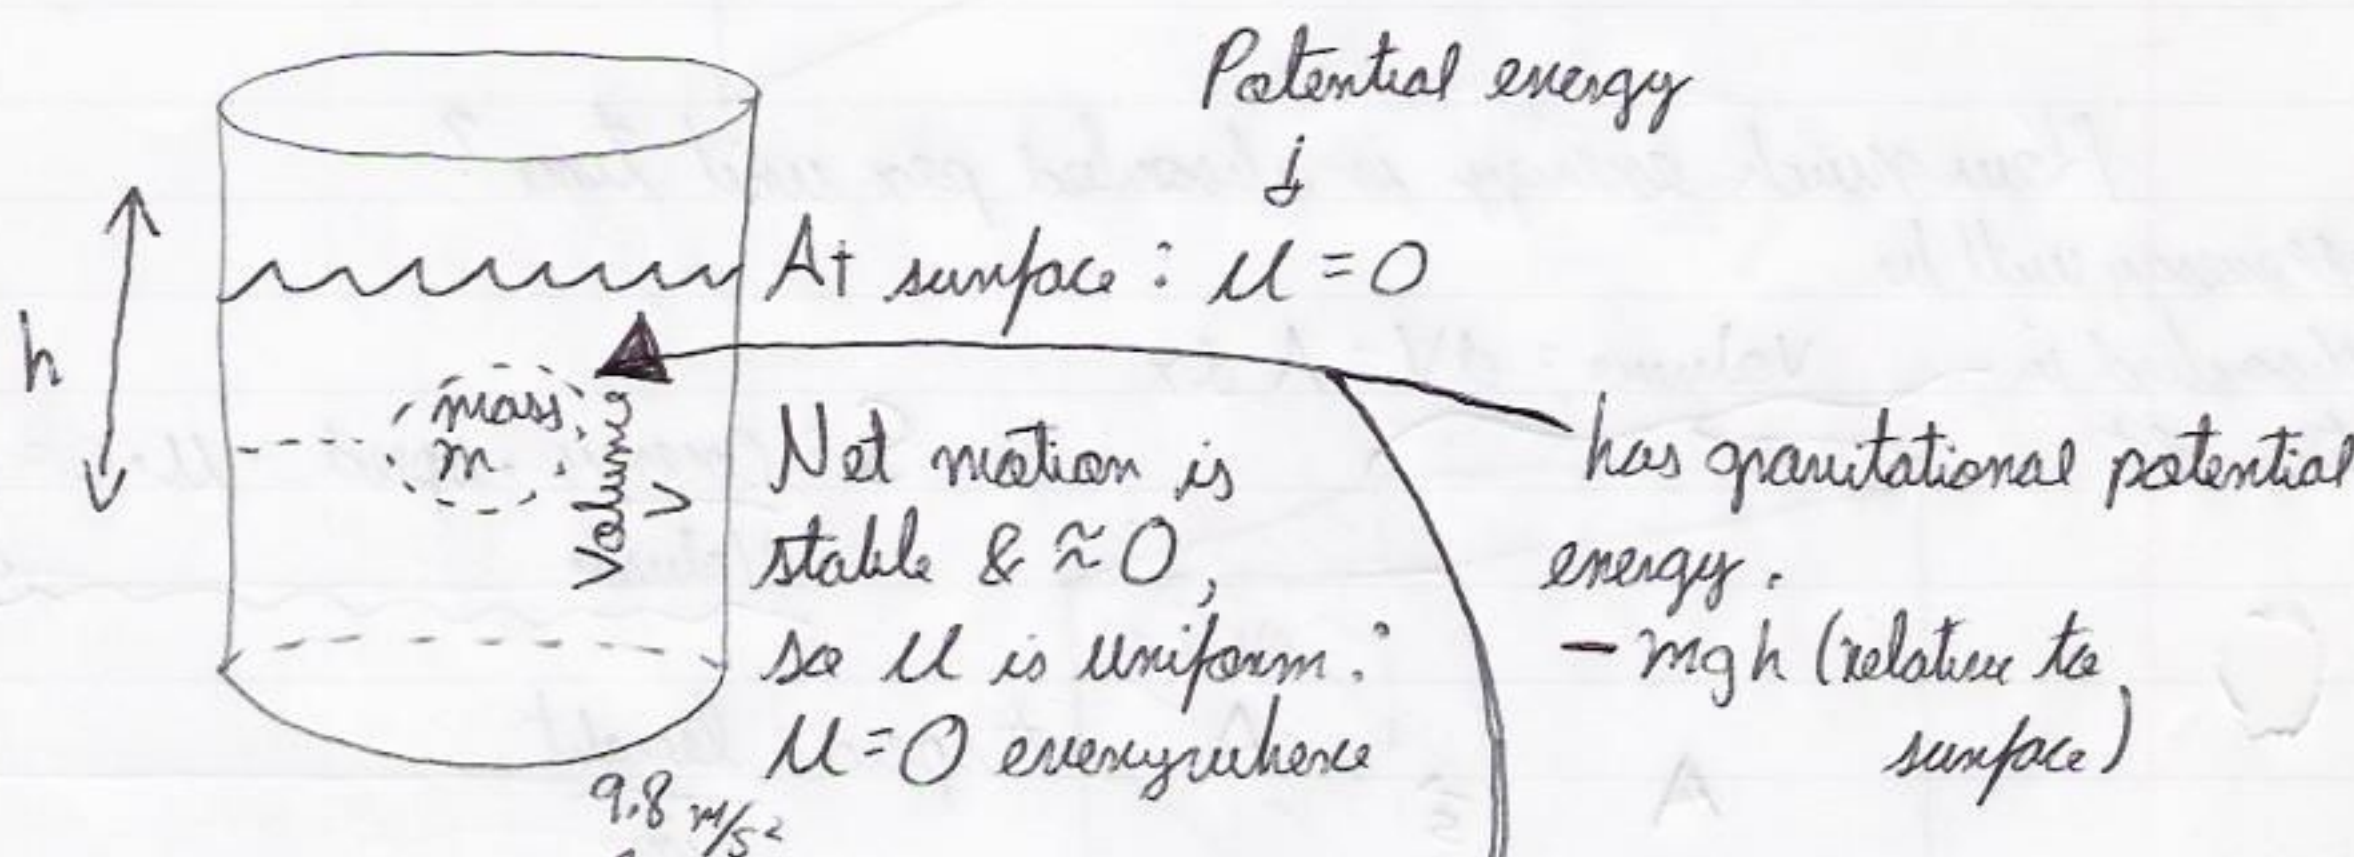 Potential energy
At surface : U = 0
h
mass
m
Volume
V
Net motion is
stable & ≈ 0,
so U is uniform :
U = 0 everywhere
has gravitational potential
energy.
- mgh (relative to
surface)
9.8 m/s²